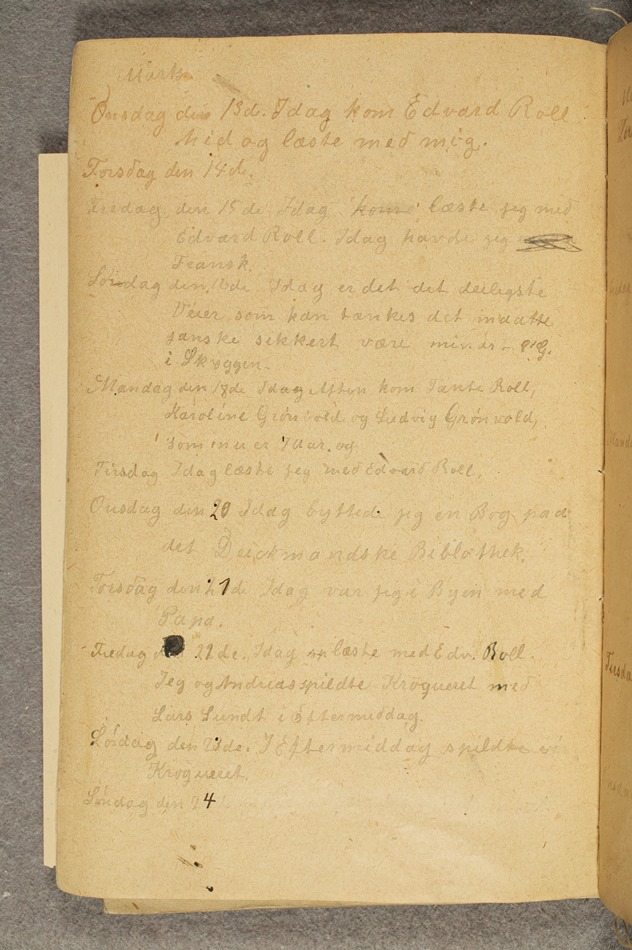 Marts
Onsdag den 13de. Idag kom Edvard Roll
hid og læste med mig.
Torsdag den 14de.
Fredag den 15de Idag kom læste jeg med
Edvard Roll. Idag havde jeg
Fransk.
Søndag den Idag er det det deiligste
Veier som kan tænkes det maatte
ganske sikkert være mindst
i Skyggen.
Mandag den 18de Idag Aften kom Tante Roll,
Karoline Grønvold og Ludvig Grønvold,
som nu er Aar. og
Tirsdag Idag læste jeg med Edvard Roll.
Onsdag den 20 Idag bytted. jeg en Bog paa
det Deickmandske Bibliothek.
Torsdag den 21de Idag var jeg i Byen med
Papa.
Fredag den 22de. Idag læste med Edv. Roll.
Jeg og Andreas spildte Kroqueret med
Lars Lundt i Eftermiddag.
Lørdag den 23de. I Eftermiddag spildte vi
Kroqueret.
Søndag den 24